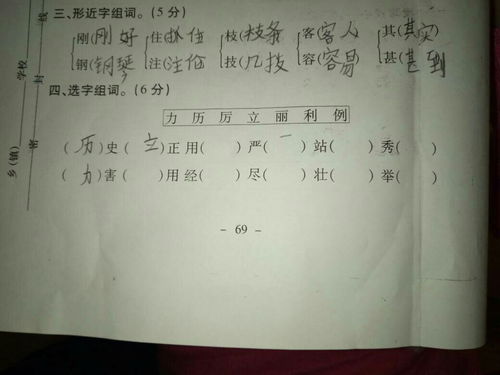 三、形近字组词。(5分)
刚(刚好 住(抓住 枝(枝条 客(客人 其(其实)
钢(钢琴 注(注 技(几技 容(容易 甚(甚到
四、选字组词。(6分)
力 历 厉 立 丽 利 例
(历)史 (立)正 用( ) 严( ) 站( ) 秀( )
(力)害 ( )用 经( ) 尽( ) 壮( ) 举( )
- 69 -
线
封
密
学校
乡(镇)